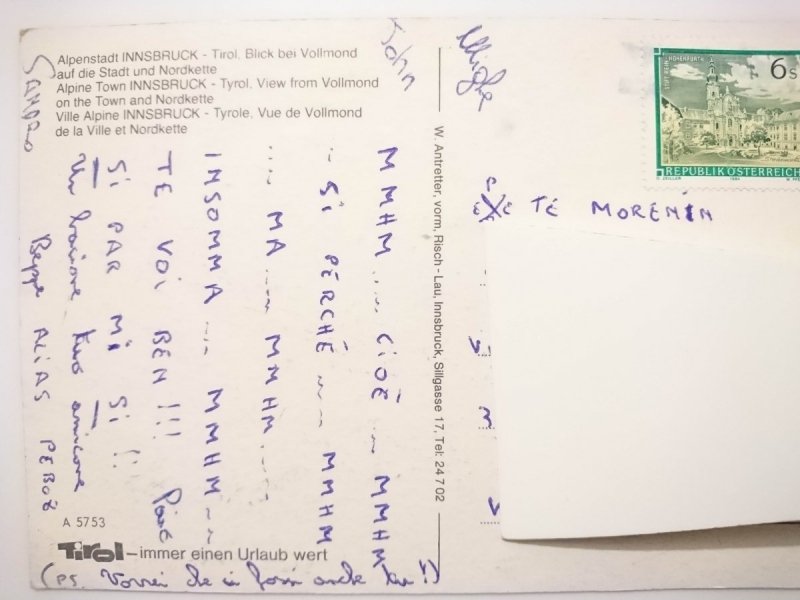 Alpenstadt INNSBRUCK - Tirol. Blick bei Vollmond
auf die Stadt und Nordkette
Alpine Town INNSBRUCK - Tyrol. View from Vollmond
on the Town and Nordkette
Ville Alpine INNSBRUCK - Tyrole. Vue de Vollmond
de la Ville et Nordkette
SANDRO
John
MMHM .... CIOÈ ... MMHM
... SI PERCHÈ .... MMHM
.... MA .... MMHM ....
INSOMMA .... MMHM ...
TE VOI BEN!!!
SI PAR MI SI!!
Un bacione tuo amicone
Beppe ALIAS
(PS. Vorrei che ci fossi anche tu!!)
A 5753
Tirol - immer einen Urlaub wert
W. Antretter, vorm. Risch - Lau, Innsbruck, Sillgasse 17, Tel: 24 7 02
STIFT REIN HOHENFURTH
6 S
REPUBLIK ÖSTERREICH
1984
TE MORENIN